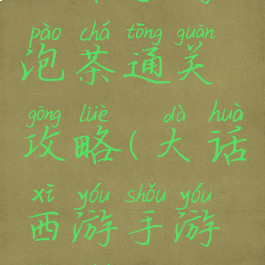 pào chá tōng guān
泡茶通关
gōng lüè dà huà
攻略(大话
xī yóu shǒu yóu
西游手游